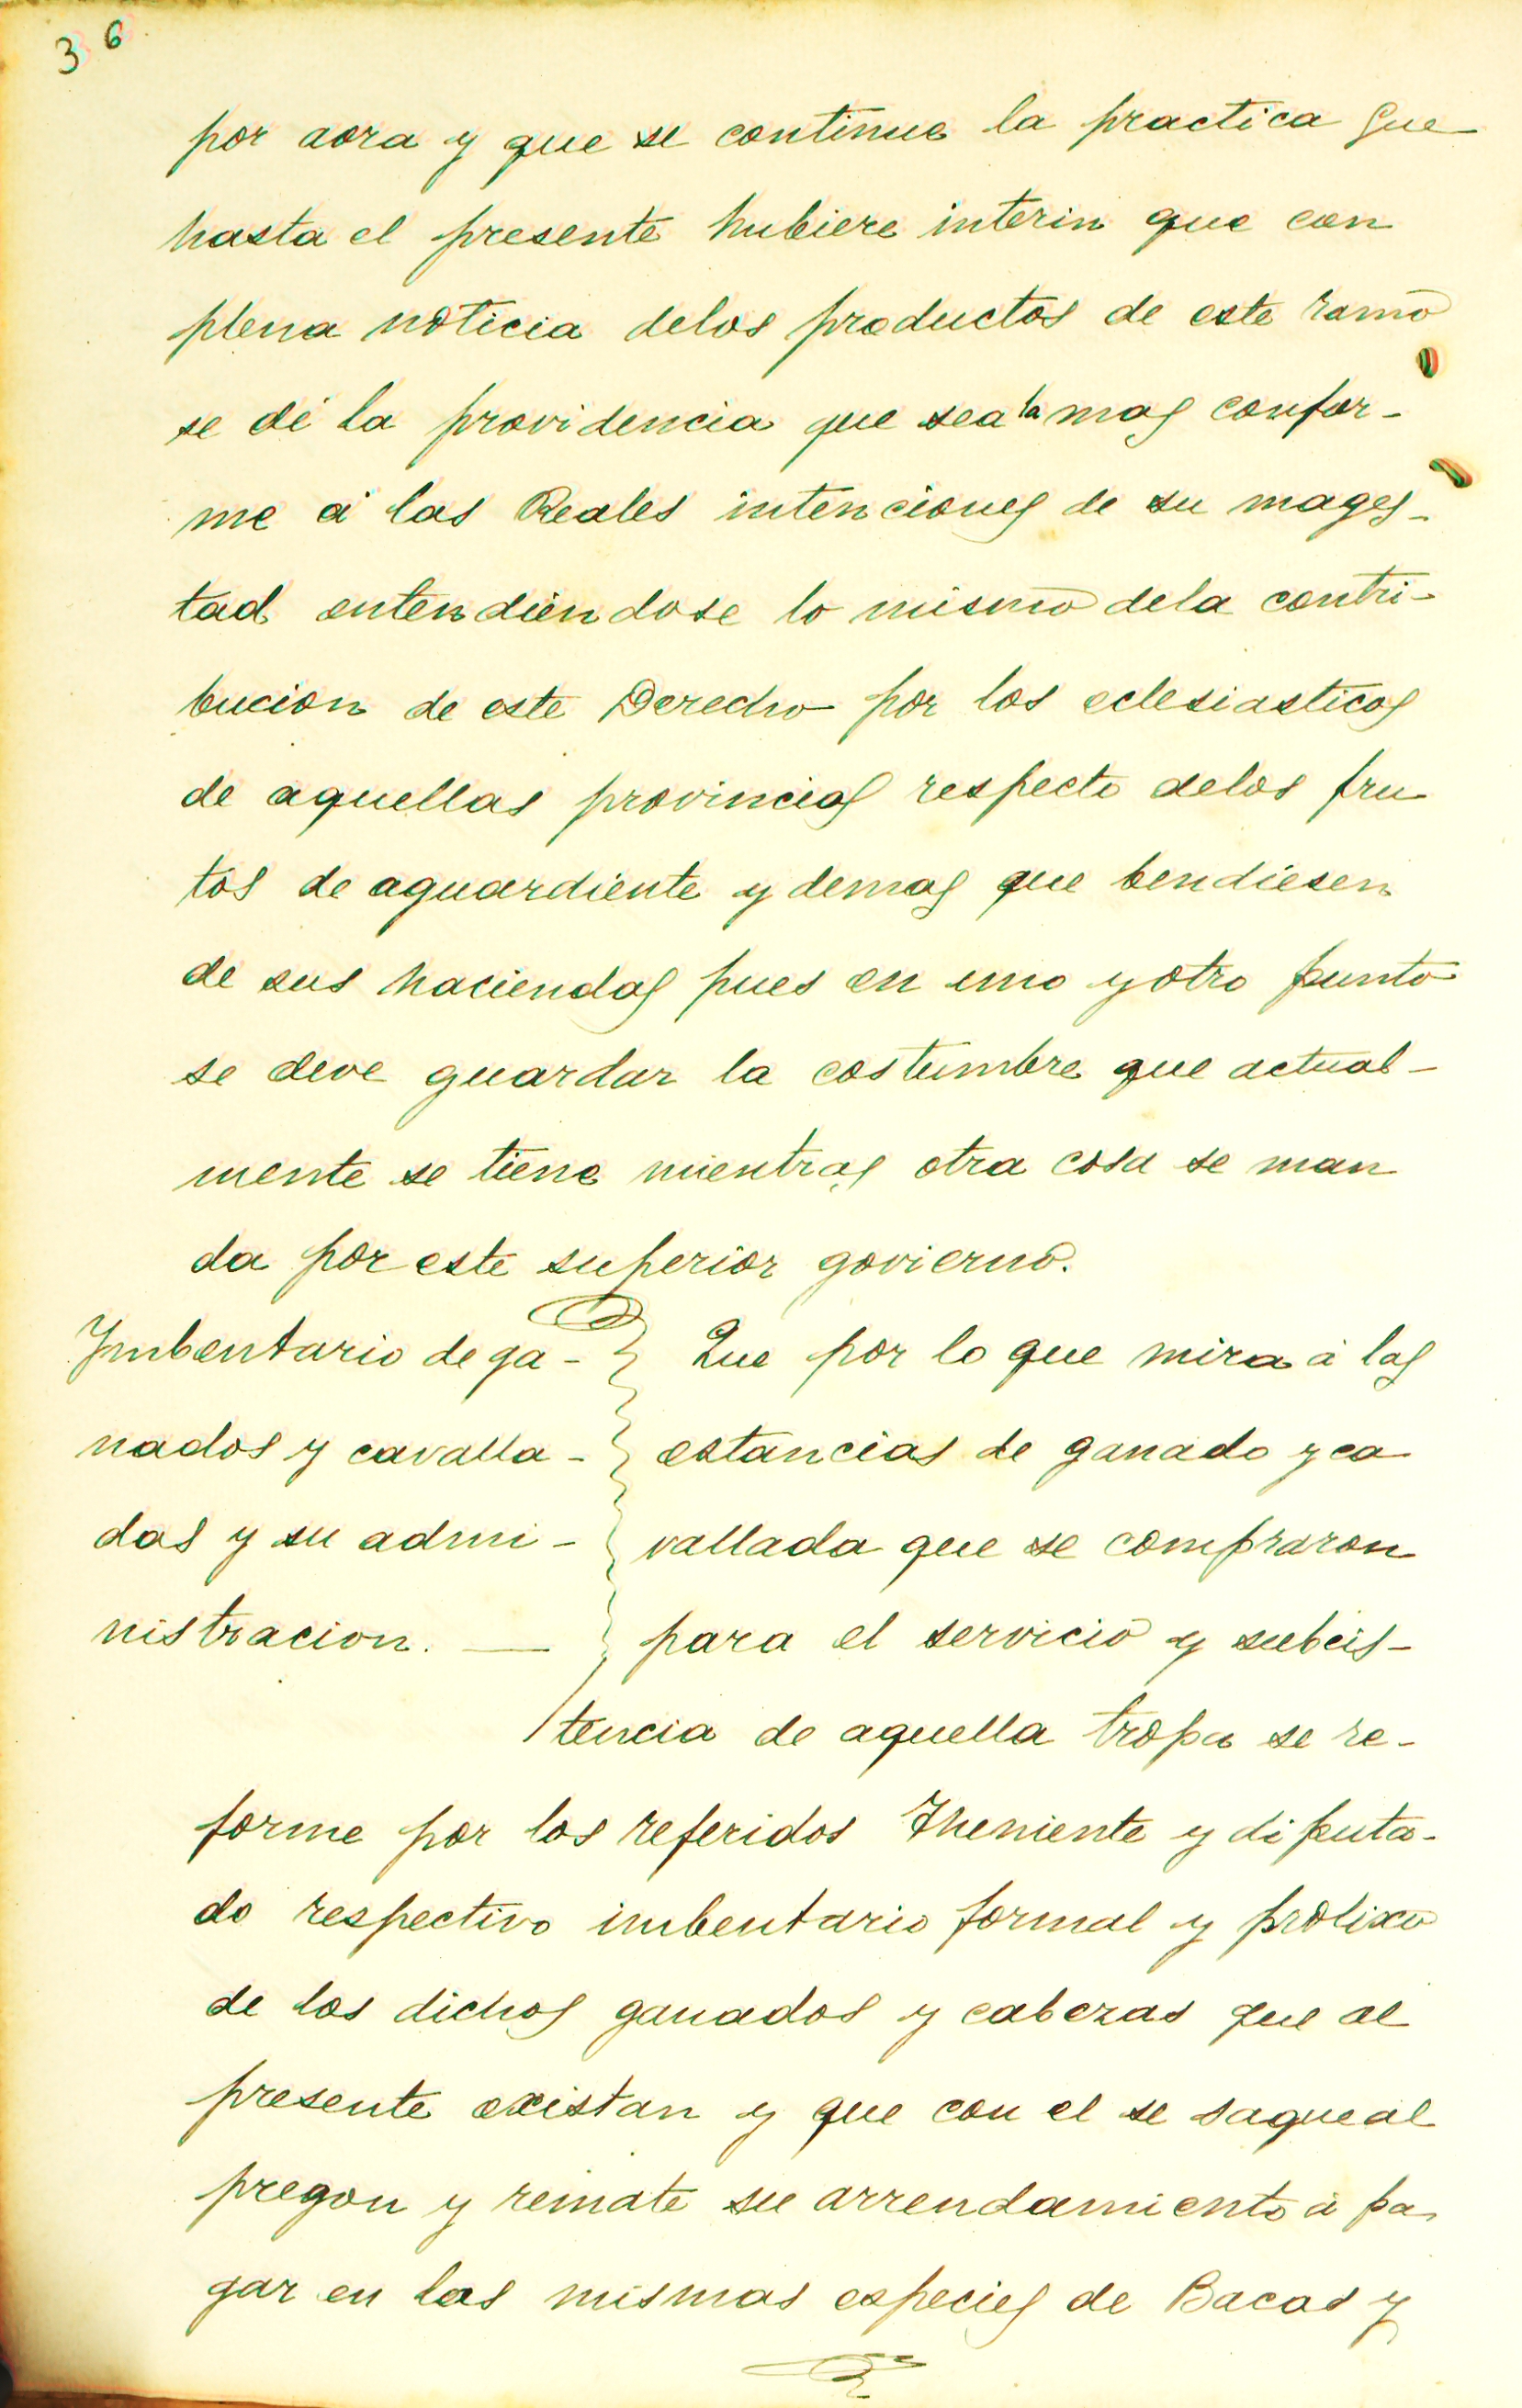 36
por aora y que se continue la practica que
hasta el presente hubiere interin que con
plena noticia delos productos de este ramo
se dé la providencia que sea la mas confor-
me á las Reales intenciones de su mages-
tad entendiendose lo mismo dela contri-
bucion de este Derecho por los eclesiasticos
de aquellas provincias respecto delos fru
tos de aguardiente y demas que bendiesen
de sus haciendas pues en uno y otro punto
se deve guardar la costumbre que actual-
mente se tiene mientras otra cosa se man
da por este superior govierno.
Imbentario de ga-
nados y cavalla-
das y su admi-
nistracion.
Que por lo que mira á las
estancias de ganado y ca
vallada que se compraron
para el servicio y subcis-
tencia de aquella tropa se re-
forme por los referidos Theniente y diputa-
do respectivo imbentario formal y prolixo
de los dichos ganados y cabezas que al
presente existan y que con el se saque al
pregon y remate su arrendamiento á pa
gar en las mismas especies de Bacas y